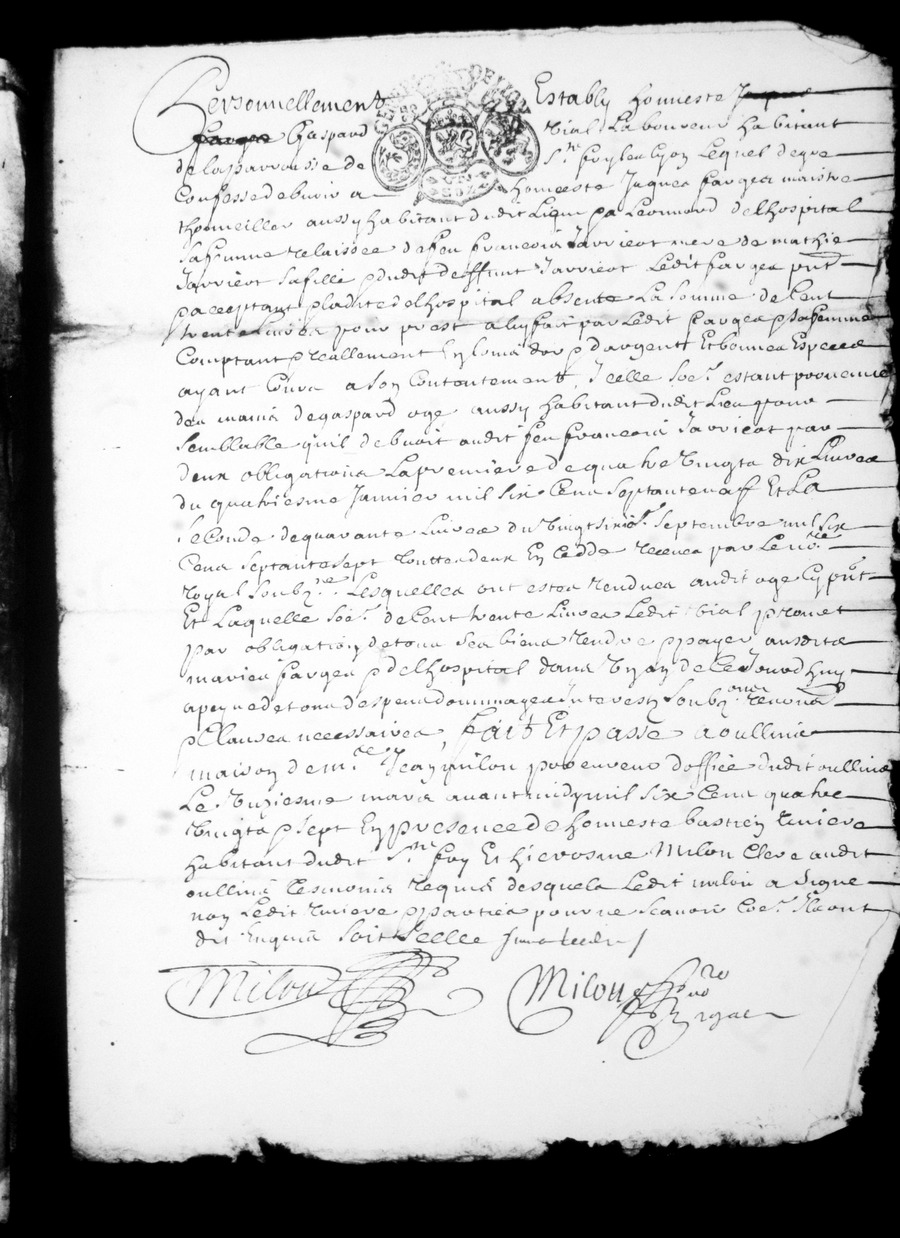 Personnellement Estably honneste
Gaspard Vial Laboureur habitant
de la parroisse de Ste foy les Lyon Lequel de gre
Confesse debvoir a honneste Jaques fargea maistre
thonnellier aussy habitant dudit Lieu Leonnard delhospital
sa femme relaissee de feu francois Jarricot mere de mathie
Jarricot sa fille dudit deffunt Jarricot Ledit fargea pnt
acceptant ladite delhospital absente La somme de Cent
trente Livres pour prest a luy fait par Ledit fargea sa femme
Comptant reallement en Louis dor dargent Et bonnes Especes
ayant Cours a son Contentement, Icelle soe. estant provenue
des mains de gaspard oge aussy habitant dudit Lieu pour
semblable quil debvoit audit feu francois Jarricot par
deux obligations La premiere de quatre vingts dix Livres
du quatriesme Janvier mil six Cens septante Et La
seconde de quarante Livres du vingtsixie. septembre mil six
Cens septante sept touttes deux En Cedde receues par Le nore
royal soubzne. Lesquelles ont estes rendues audit oge Cy pnt
Et Laquelle soe. de Cent trente Livres Ledit Vial promet
par obligation de tous ses biens rendre payer ausdits
maries fargea delhospital dans de Ce Jourdhuy
a peyne de tous despens dommages Interests soubz renons
Clauses necessaires, fait Et passe a oullins
maison de me. Jean milon procureur doffice dudit oullins
Le unziesme mars avant midy mil six Cens quatre
vingts sept En presence de honneste bastien riviere
habitant dudit Ste foy Et hierosme Milon Clerc audit
oullins tesmoins requis desquels Ledit milon a signe
non Ledit riviere parties pour ne scavoir Coe. Ils ont
dit Enquis soit scelle
Milon Milon
royal